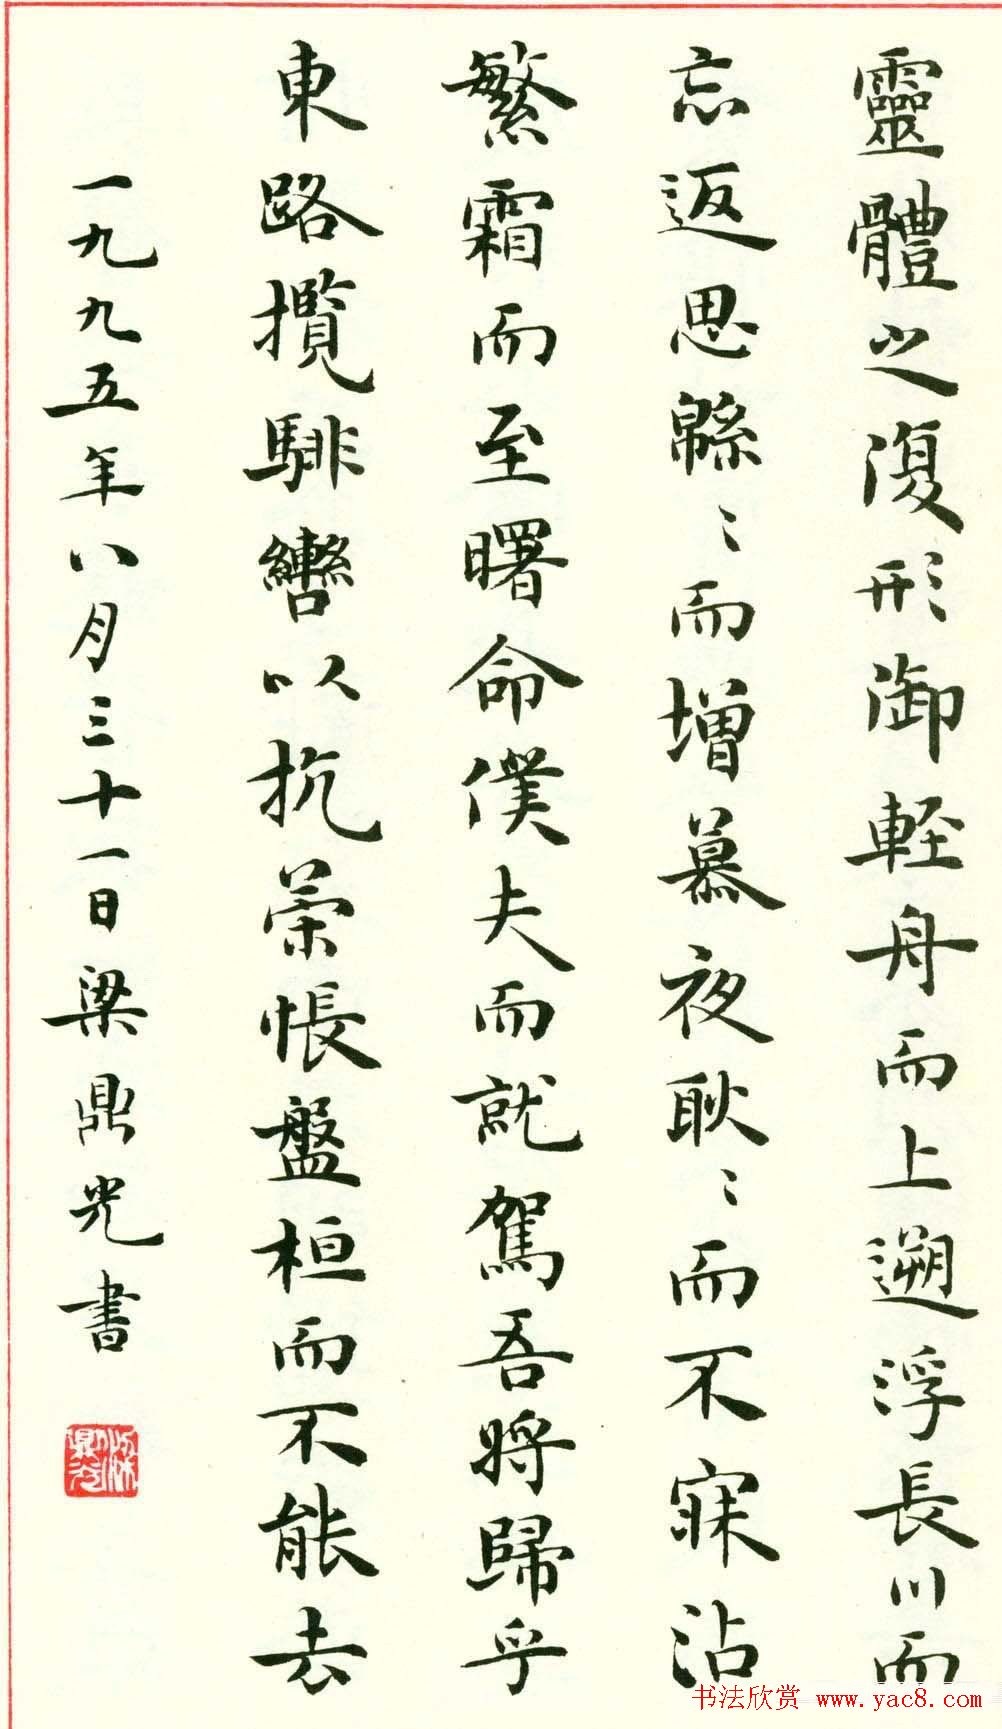 靈體之復形御輕舟而上遡浮長川而
忘返思緜〻而增慕夜耿〻而不寐沾
繁霜而至曙命僕夫而就駕吾將歸乎
東路攬騑轡以抗策悵盤桓而不能去
一九九五年八月三十一日梁鼎光書
梁鼎光
书法欣赏 www.yac8.com